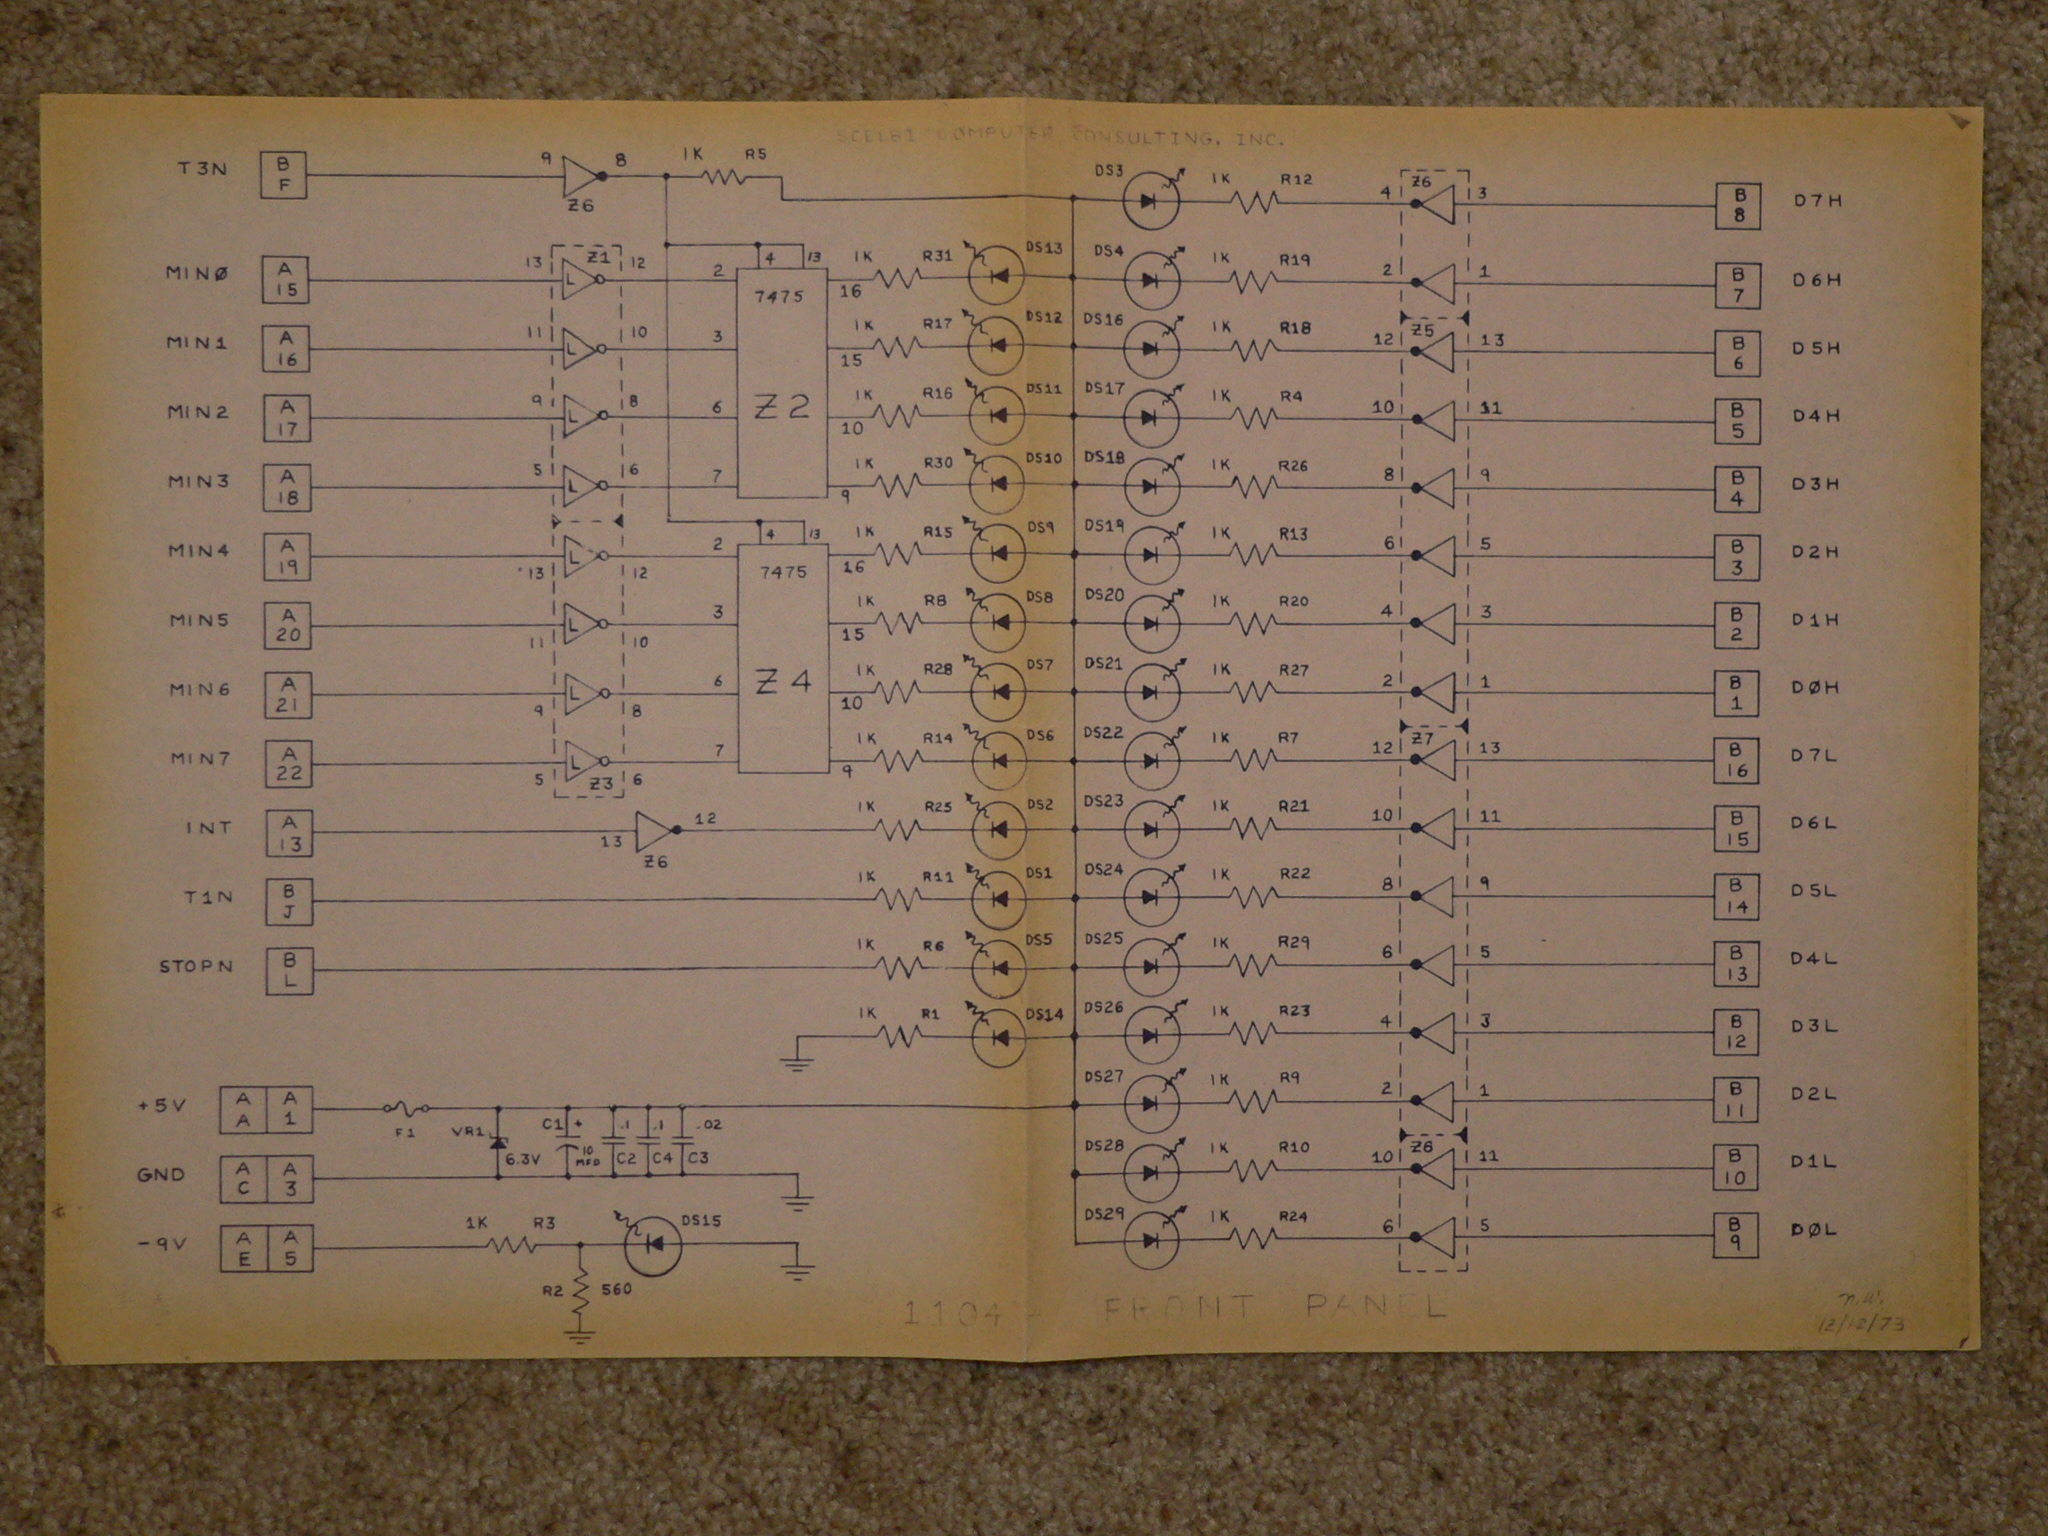 SCELBI COMPUTER CONSULTING, INC.
T3N B F 9 8 Z6 1K R5 DS3 1K R12 4 Z6 3 B 8 D7H
MINØ A 15 13 Z1 12 2 4 13 16 1K R31 DS13 DS4 1K R19 2 1 B 7 D6H
7475
MIN1 A 16 11 10 3 15 1K R17 DS12 DS16 1K R18 12 Z5 13 B 6 D5H
MIN2 A 17 9 8 6 Z2 10 1K R16 DS11 DS17 1K R4 10 11 B 5 D4H
MIN3 A 18 5 6 7 9 1K R30 DS10 DS18 1K R26 8 9 B 4 D3H
MIN4 A 19 13 12 2 4 13 16 1K R15 DS9 DS19 1K R13 6 5 B 3 D2H
7475
MIN5 A 20 11 10 3 15 1K R8 DS8 DS20 1K R20 4 3 B 2 D1H
MIN6 A 21 9 8 6 Z4 10 1K R28 DS7 DS21 1K R27 2 1 B 1 DØH
MIN7 A 22 5 Z3 6 7 9 1K R14 DS6 DS22 1K R7 12 Z7 13 B 16 D7L
INT A 13 13 Z6 12 1K R25 DS2 DS23 1K R21 10 11 B 15 D6L
T1N B J 1K R11 DS1 DS24 1K R22 8 9 B 14 D5L
STOPN B L 1K R6 DS5 DS25 1K R29 6 5 B 13 D4L
1K R1 DS14 DS26 1K R23 4 3 B 12 D3L
+5V A A A 1 F1 VR1 6.3V C1 + 10 MFD .1 C2 .1 C4 .02 C3 DS27 1K R9 2 1 B 11 D2L
GND A C A 3 DS28 1K R10 10 Z8 11 B 10 D1L
-9V A E A 5 1K R3 R2 560 DS15 DS29 1K R24 6 5 B 9 DØL
1104 - FRONT PANEL
n.w.
12/12/73